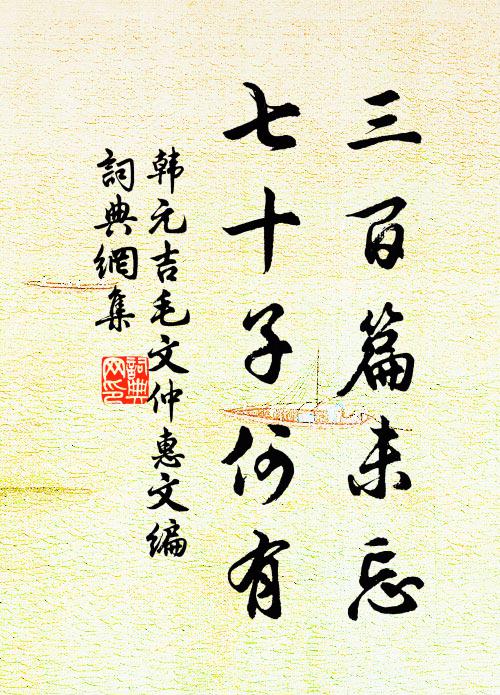 三百篇未忘
七十子何有
韩元吉毛文仲惠文编
詞典網集
詞典
网印